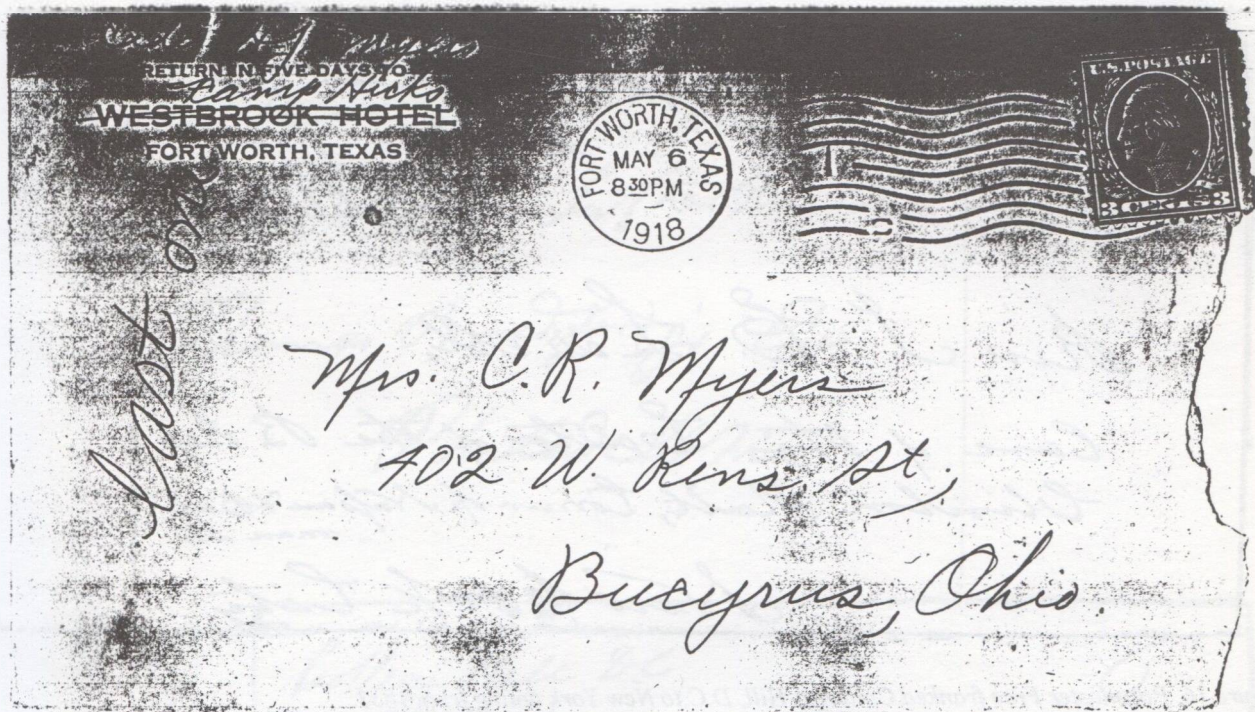 Myers
RETURN IN FIVE DAYS TO
Camp Hicks
WESTBROOK HOTEL
FORT WORTH, TEXAS
FORT WORTH, TEXAS
MAY 6
8 30 P.M
1918
U.S. POSTAGE
3 CENTS 3
last one
Mrs. C. R. Myers
402 W. Rens. St,
Bucyrus, Ohio.